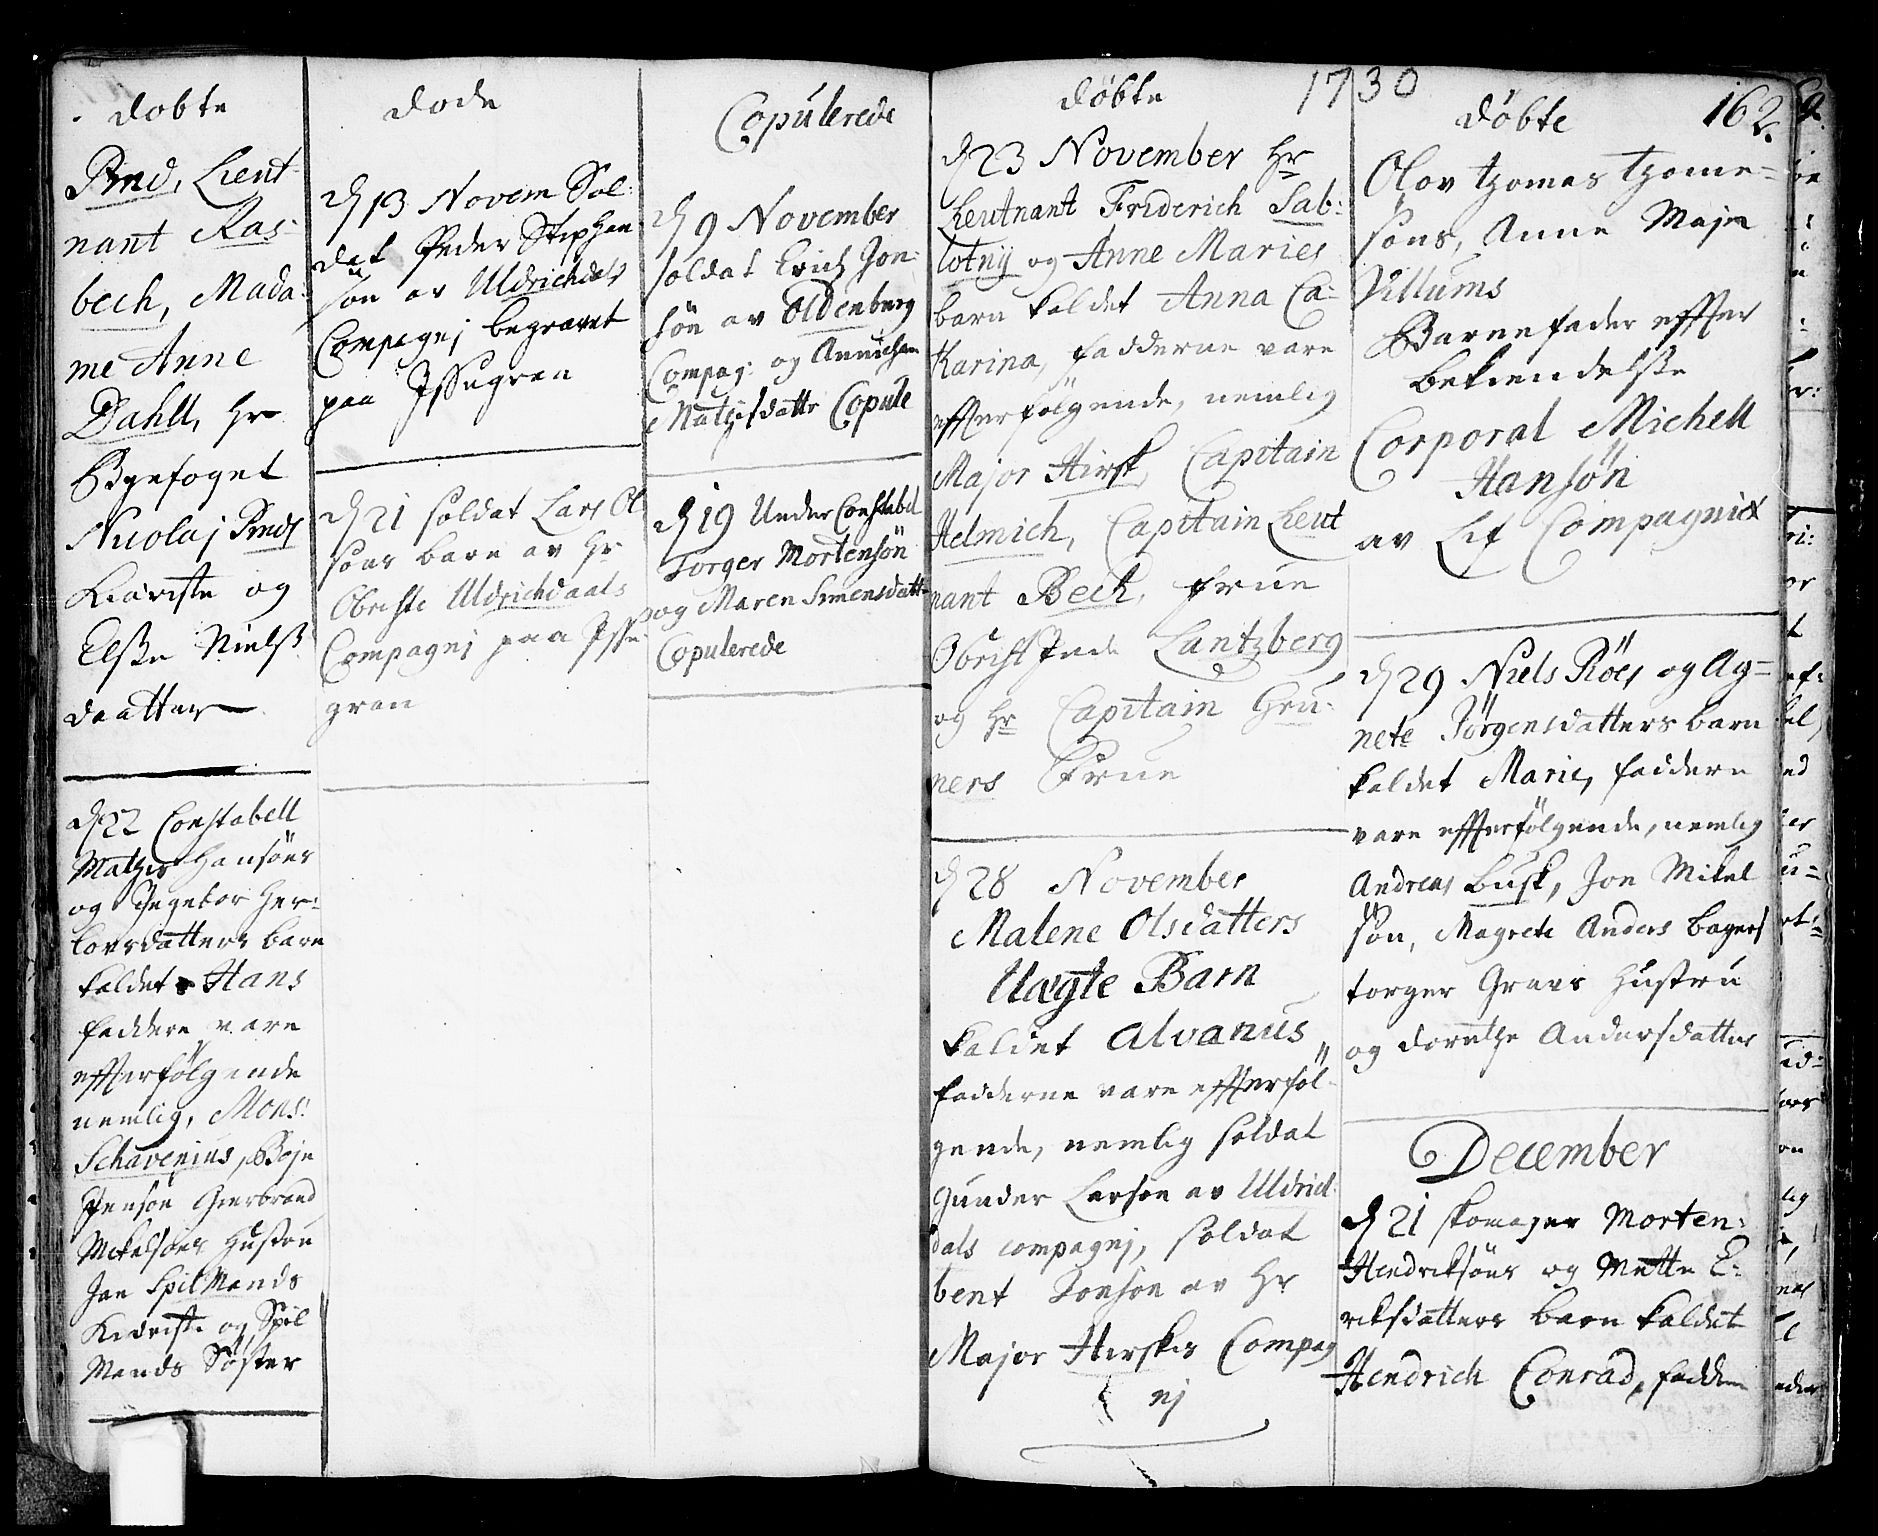 døbte
Pind, Lieut-
nant Ras:
bech, Mada:
me Anne
Dahll, Hr
Byefoget
Nicolaj Pinds
Kiæriste og
Elsße Nielß
daatter
d 22 Constabell
Mathis Hansöns
og Ingebor Her:
lovsdatters barn
kaldet Hans
faddere vare
effterfölgende
nemlig, Mons:
Schavenius, Boje
Jensön
Mikelsöns Hustru
Jan Spilmands
Kieriste og Spil
Mands Söster
døde
d 13 Novem Sol:
dat Peder Stephen
sön av Uldrichdals
Compagnj begravet
paa Issegran
d 21 soldat Lars Ol
söns barn av Hr
Obriste Uldrichdaals
Compagnj paa Isse
gran
Copulerede
d 9 November
soldat Erich Jon:
sön av Oldenberg
Compag: og Annichen
Mathisdattr Copule
d 19 Under Constabel
Torger Mortensön
og Maren Simensdattr
Copulerede
1730
døbte
d 23 November Hr
Lieutnant Friderich Sab:
lotnÿ og Anne Maries
barn kaldet Anna Ca:
tkarina, fadderne vare
effterfölgende, nemlig
Major Hirsk, Capitain
Helmich, Capitain Lieut
nant Bech, Frue
Obrist Inde Lantzberg
og Hr Capitain Grü:
ners Frue
d 28 November
Malene Olsdatters
Uægte Barn
kaldet Alvanus
fadderne vare effterföl-
gende, nemlig soldat
Gunder Larsön av Uldrich
dals compagnj, soldat
bent Tonsön av Hr
Major Hirskes Compag
nj
162.
døbte
Olov Thomas Thome=
söns, Anne Maja
Villums
Barnefader effter
bekiendelsße
Corporal Michell
Hansön
av Lif Compagniet
d 29 Niels Röes og Ag=
nete Jörgensdatters barn
kaldet Marie, faddere
vare effterfölgende, nemlig
Andreas Busk, Jon Mikel
sön, Magrete Anders bagers
torger Graus Hustru
og dorethe Andersdatter
December
d 21 skomager Morten:
Hendriksöns og Mette E:
riksdatters barn kaldet
Hendrich Conrad, faddere